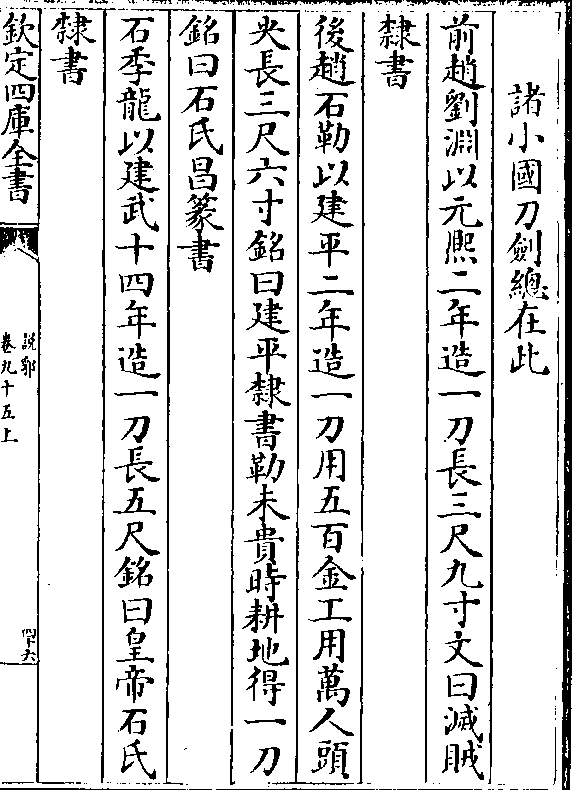 諸小國刀劍總在此
前趙劉淵以元熈二年造一刀長三尺九寸文曰滅賊
隸書
後趙石勒以建平二年造一刀用五百金工用萬人頭
尖長三尺六寸銘曰建平隸書勒未貴時耕地得一刀
銘曰石氏昌篆書
石季龍以建武十四年造一刀長五尺銘曰皇帝石氏
隸書
欽定四庫全書
說郛
卷九十五上
四十六